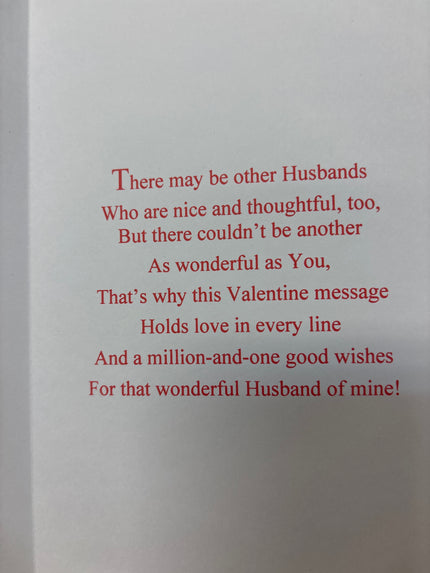 There may be other Husbands
Who are nice and thoughtful, too,
But there couldn't be another
As wonderful as You,
That's why this Valentine message
Holds love in every line
And a million-and-one good wishes
For that wonderful Husband of mine!